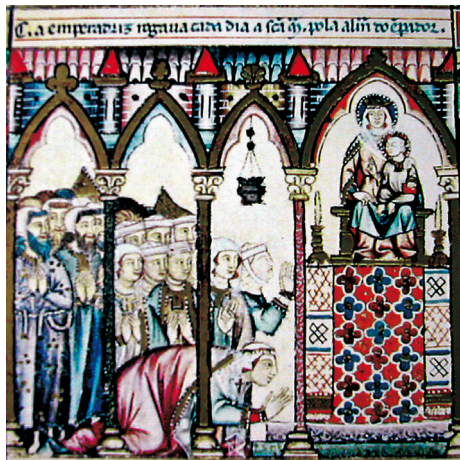 C. a emperadriz rogaua cada dia a sc̄a M̃. pola alm̃ do ẽp̄ador.